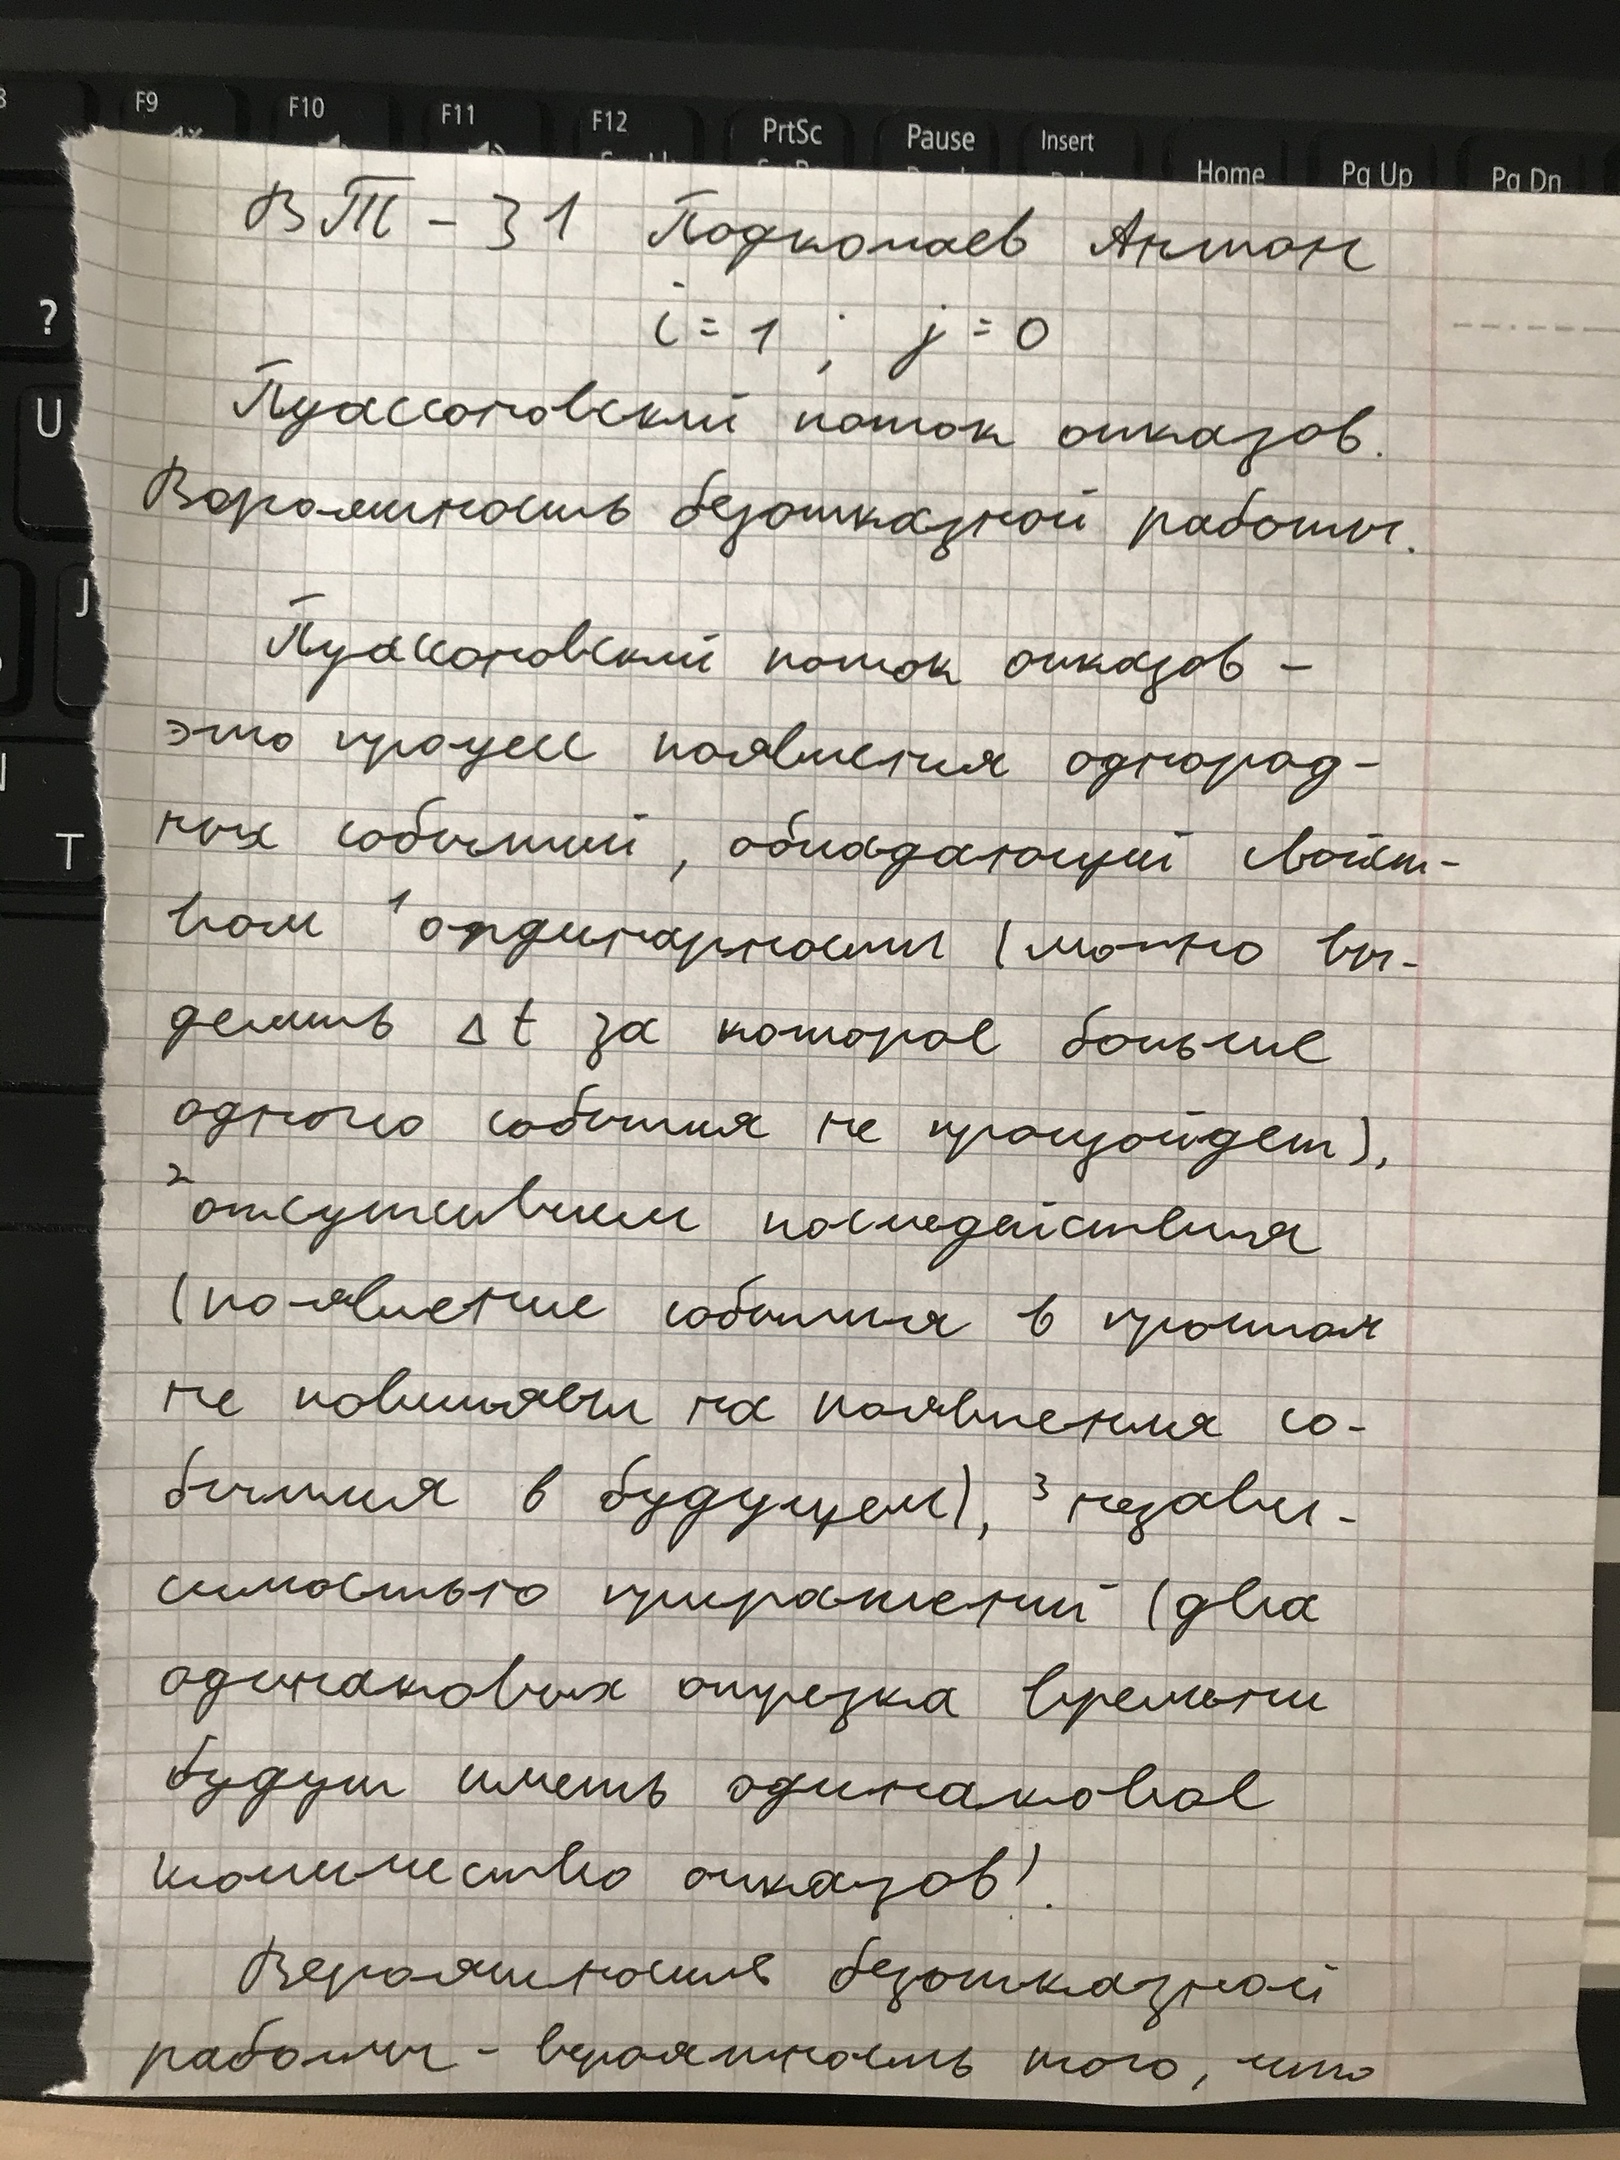 F9
F10
F11
F12
PrtSc
Pause
Insert
Home
Pg Up
Pg Dn
?
U
J
T
ВТ - 31 Подкопаев Антон
i = 1 ; j = 0
Пуассоновский поток отказов.
Вороятность безотказной работы.
Пуассоновский поток отказов -
это процесс появления однород-
ных событий, обладающий свойст-
вом ¹ординарности (можно вы-
делить Δt за которое больше
одного события не произойдет),
²отсутствием последействия
(появление события в прошлом
не повлияви на появления со-
бытия в будущем), ³незави-
симостью приражений (два
одинаковых отрезка времени
будут иметь одинаковое
количество отказов).
Вероятность безотказной
работы - вероятность того, что